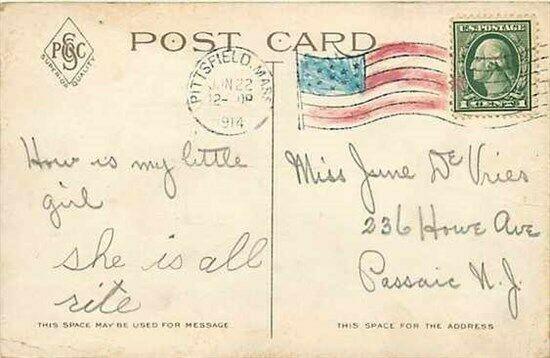 PSGC
SUPERIOR QUALITY
POST CARD
PITTSFIELD, MASS
JUN 22
12-
1914
U.S. POSTAGE
1 CENT 1
How is my little
girl
she is all
rite
Miss June De Vries
236 Howe Ave
Passaic N.J.
THIS SPACE MAY BE USED FOR MESSAGE
THIS SPACE FOR THE ADDRESS